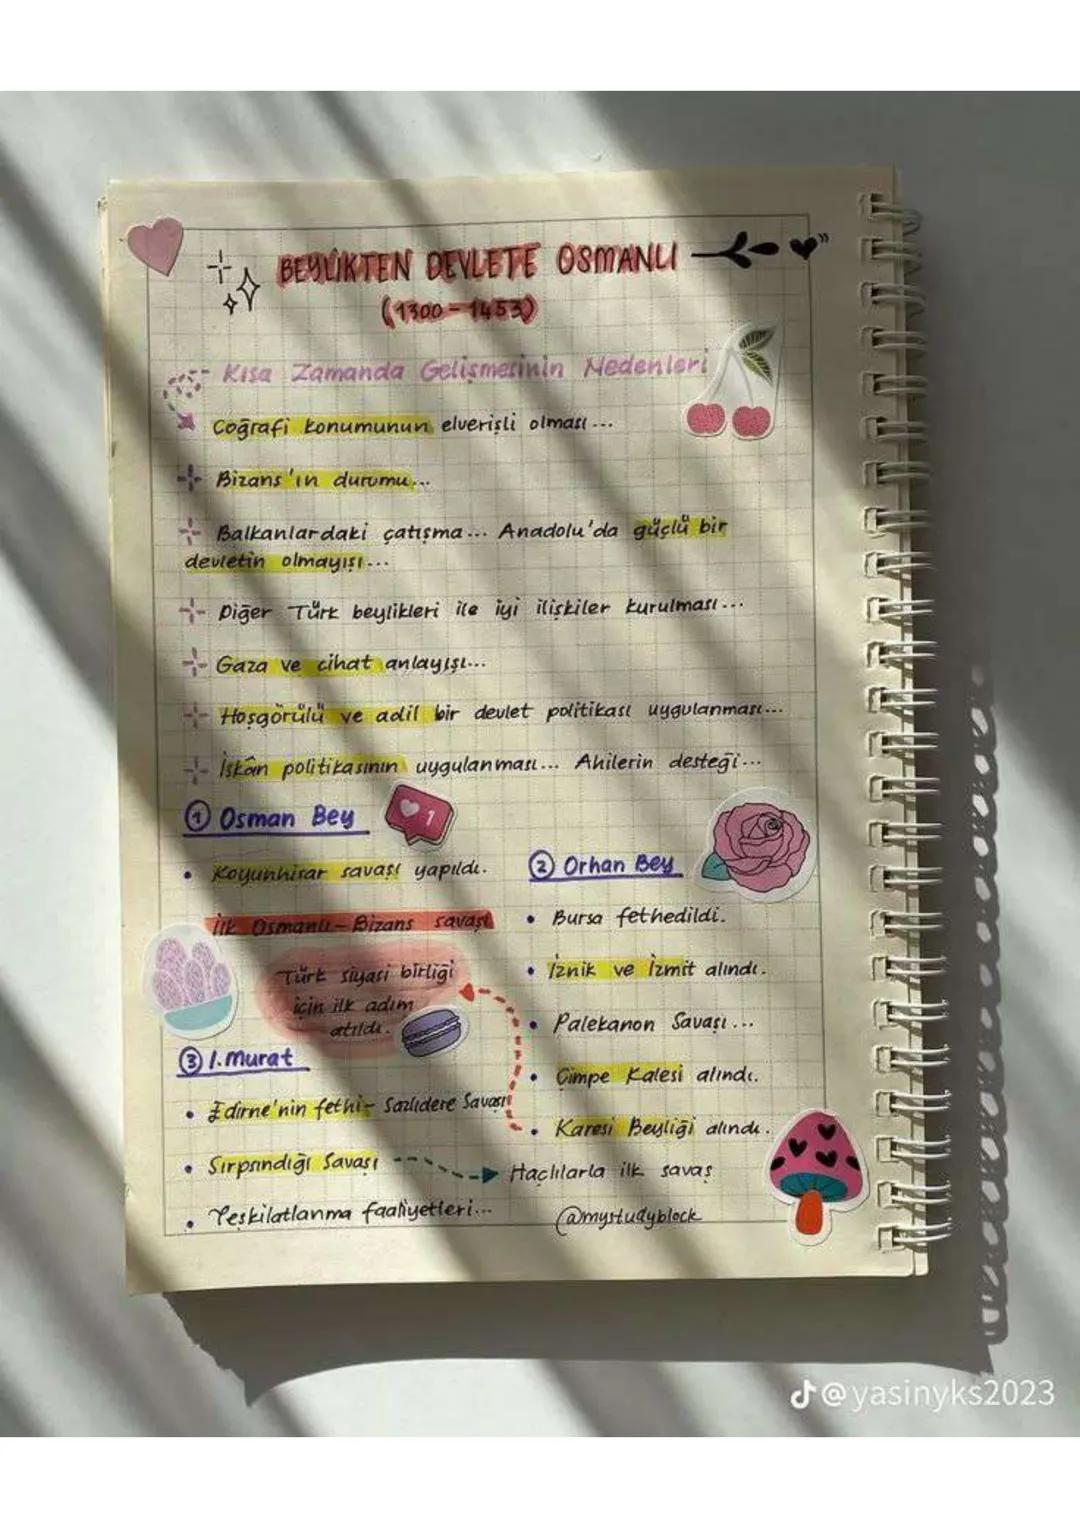 BEYLİKTEN DEVLETE OSMANLI
(1300-1453)
Kısa Zamanda Gelişmesinin Nedenleri
Coğrafi konumunun elverişli olması...
Bizans'ın durumu...
Balkanlardaki çatışma... Anadolu'da güçlü bir
devletin olmayışı...
Diğer Türk beylikleri ile iyi ilişkiler kurulması...
Gaza ve cihat anlayışı...
Hoşgörülü ve adil bir devlet politikası uygulanması...
İskân politikasının uygulanması... Ahilerin desteği...
1 Osman Bey
1
• Koyunhisar savaşı yapıldı.
İlk Osmanlı-Bizans savaşı
Türk siyasi birliği
için ilk adım
atıldı.
2 Orhan Bey
• Bursa fethedildi.
• İznik ve İzmit alındı.
• Palekanon Savaşı...
• Çimpe Kalesi alındı.
• Karesi Beyliği alındı.
3 I. Murat
• Edirne'nin fethi - Sazlıdere Savaşı
• Sırpsındığı Savaşı
Haçlılarla ilk savaş
• Teşkilatlanma faaliyetleri...
@mystudyblock
@yasinyks2023